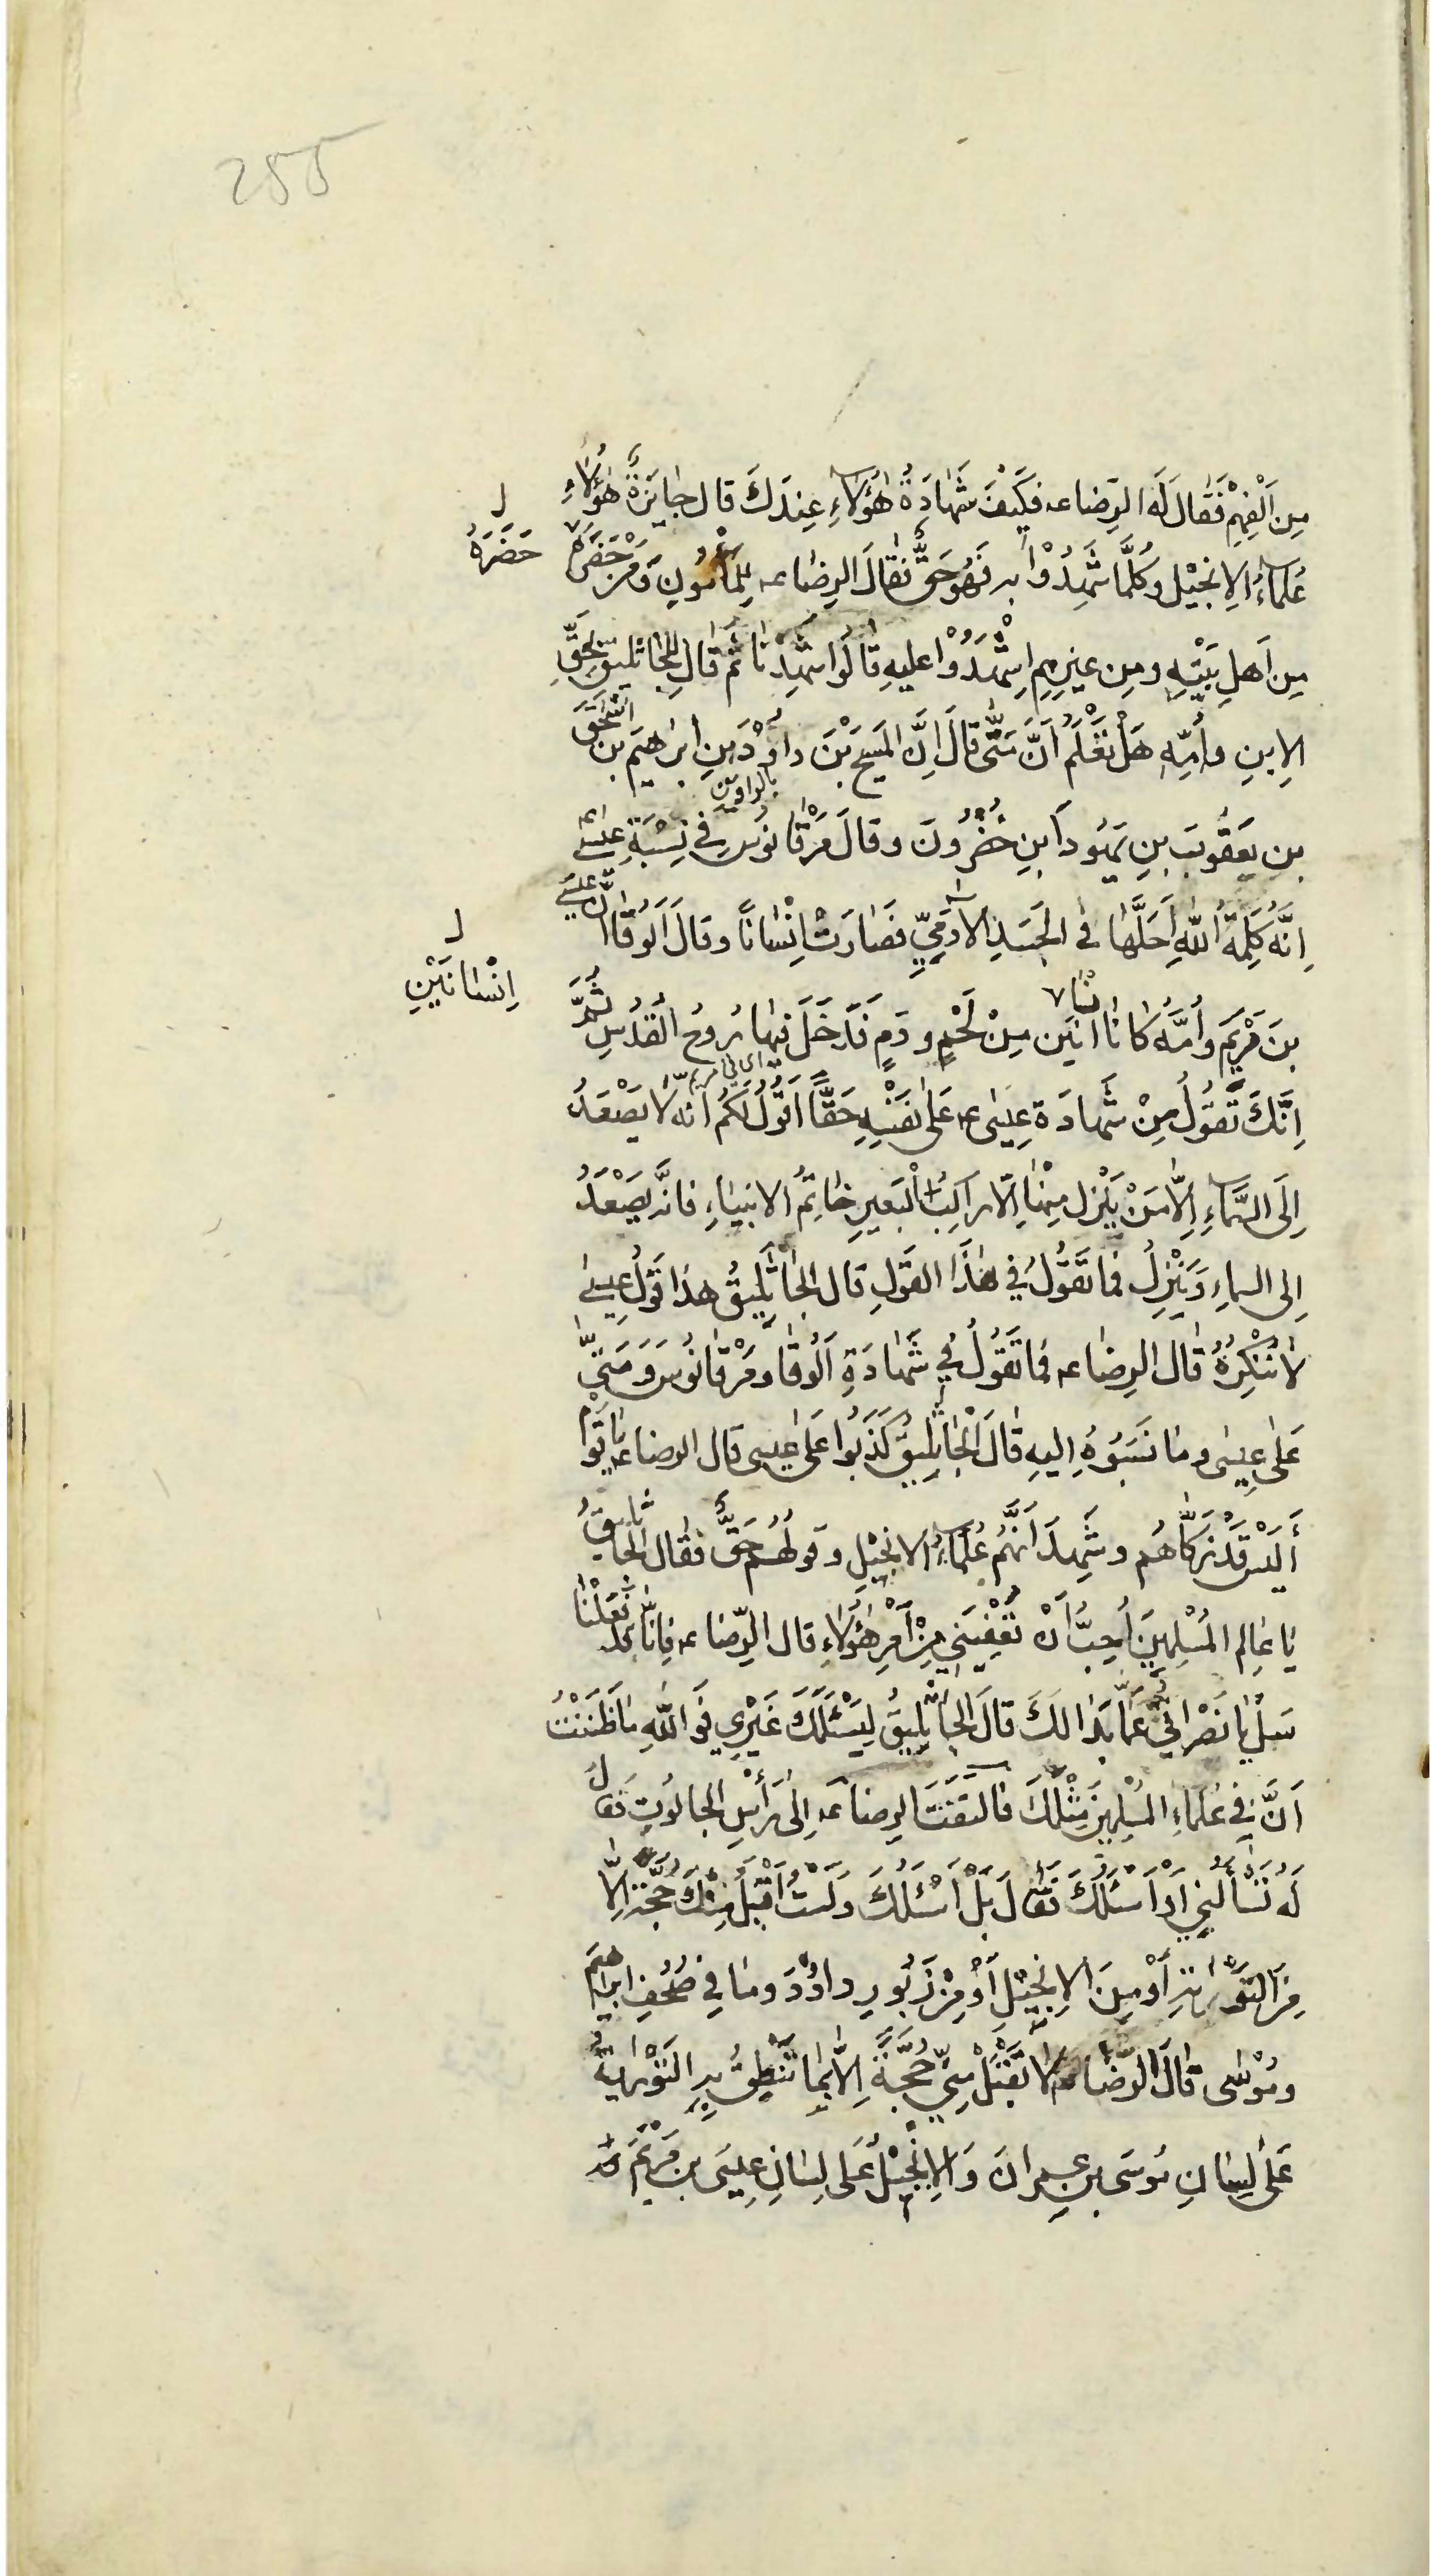 255
مِنَ الْفِهْمِ فَقَالَ لَهُ الرِّضاعه فَكَيْفَ شَهَادَةُ هٰؤُلَاءِ عِندَكَ قال جايَزَةٌ هٰؤُلَاءِ
عُلَمَاءُ الاِنجيْلِ وكُلَّمَا شَهِدُوْا بِه فَهُوَ حَقٌّ فَقَالَ الرِضَاعه لِلْمَأْمُونِ وَمَنْ حَضَرَهُ
حَضَرَهُ
مِن اَهلِ بَيْتِهِ ومِن غيرِهِمِ اِشْهَدُوْا عليهِ قٰالُوا شَهِدْنَا ثُمَّ قَالَ لِلجَاثليق بِحَقِّ
الاِبنِ وأُمِّهِ هَلْ تَعْلَمُ اَنَّ مَتّٰى قالَ اِنَّ المَسِيحَ بْنَ داوُدَ بنِ ابرٰهيمَ بن اسْحٰقَ
بنِ يَعقُوبَ بنِ يَهُوداَ ابنِ خُضْرُونَ وقالَ مَرْقَانُوسَ فِي نِسْبَةِ عِيسٰى
بالواوين
اِنَّهُ كَلِمَةُ اللهِ اَحَلَّهَا فى الجَسَدِ الاٰدَمِيّ فَصَارَتْ اِنْسَاناً وقالَ اَلُوقَا اِنَّ عيسٰى
اِنْسَانَيْنِ
بنَ مَرْيَمَ وأُمَّهُ كانا اثنَين مِنْ لَحْمٍ ودَمٍ فَدَخَلَ فيها رُوحُ القُدُسِ ثُمَّ
اِنَّكَ تَقُولُ مِنْ شَهادَةِ عِيسٰى عه عَلٰى نَفْسِهِ حَقًّا اَقُولُ لَكُم انه لَا يَصْعَدُ
اِلَى السَّمَاءِ اِلَّا مَنْ يَنْزِل مِنْهَا اِلّا راكِبُ الْبَعيرِ خاتِمُ الانبياءِ فانَّه يَصْعَدُ
اِلى السماءِ وَيَنْزِلُ فما تَقُولُ فِي هٰذَا القَولِ قال الجَاثَلِيقُ هذا قَولُ عِيسٰى
لٰا نُنْكِرُهُ قٰال الرِضاعه فما تَقُولُ فِي شَهَادَةِ اَلُوقَا ومَرْقَانُوسَ وَمَتّٰى
عَلٰى عِيسٰى وما نَسَبُوهُ اِليهِ قٰالَ الْجَاثَلِيقُ كَذَبُوا عَلٰى عِيسٰى قال الرضاعه يَا قَومِ
أَلَيْسَ قَدْ زَكَّاهُم وشَهِدَ اَنَّهُمْ عُلَمَاءُ الانجيْلِ وقَولُهُم حَقٌّ فَقال الْجَاثليقُ
يا عالِم المُسْلِمِينَ اُحِبُّ اَنْ تُعْفِيَنِي مِنْ أَمْرِ هٰؤُلَاءِ قال الرِّضاعه فَانّا قد فَعَلْنَا
سَلْ يَا نَصْرَانِيُّ عَمَّا بَدا لَكَ قالَ الجَاثَلِيقُ لِيَسْئَلَكَ غَيْرِي فَوَاللهِ مَا ظَنَنْتُ
اَنَّ فِي عُلَمَاءِ المُسْلِمِينَ مِثْلَكَ فالتَفَتَ الرِضَاعه اِلٰى رَأْسِ الجالُوتِ فَقَالَ
لَهُ تَسْأَلُنِي اَوْ اَسْئَلُكَ فَقَالَ بَلْ اَسْئَلُكَ وَلَسْتُ اَقْبَلُ مِنْكَ حُجَّةً اِلَّا
مِنَ التَوْرٰيةِ اَوْ مِنَ الاِنجِيْلِ اَوْ مِنْ زَبُورِ داوُدَ ومَا فِي صُحُفِ ابراهيمَ
ومُوْسٰى قٰالَ الرِّضا لَا تَقْبَلْ مِنِّي حُجَّةً اِلَّا بِمَا تَنْطِقُ بِهِ التَوْرٰيةُ
عَلٰى لِسَانِ مُوسٰى بن عِمرانَ وَالاِنْجِيْلُ عَلى لِسَانِ عِيسَى بن مَرْيَمَ